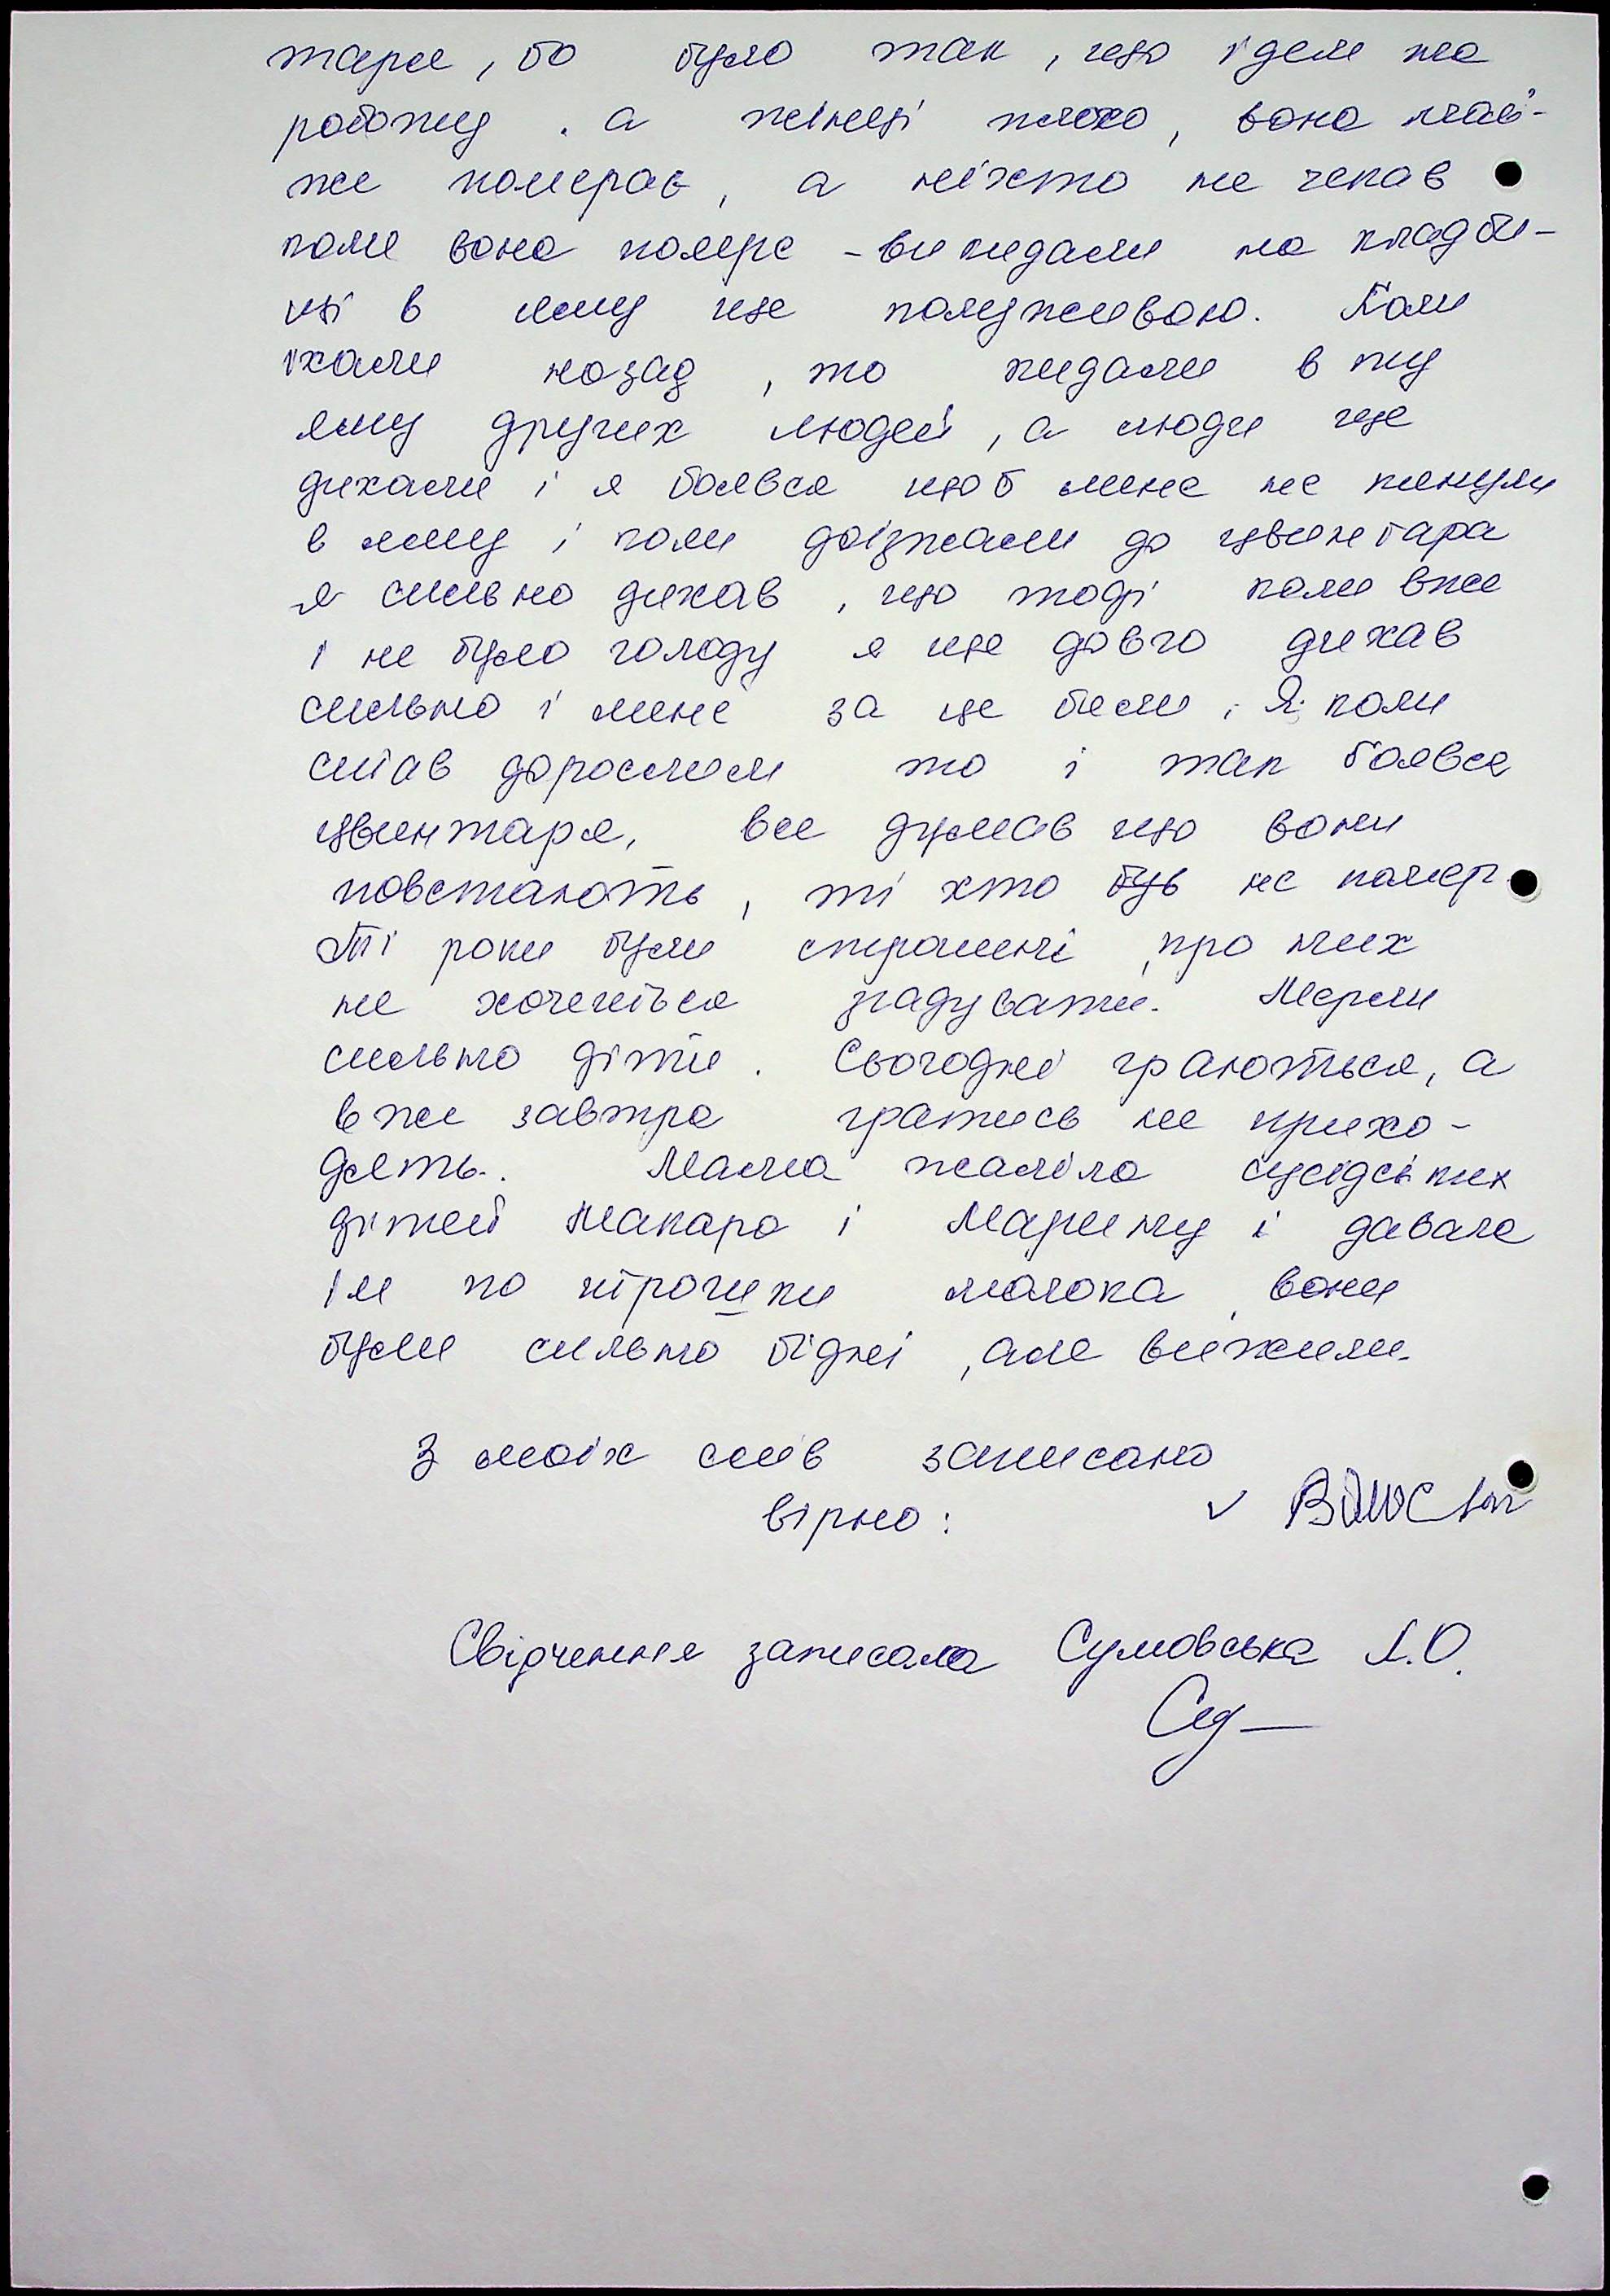 таря, бо було так, що їдем на
роботу. а жінці плохо, вона май-
же помера, а ніхто не чекав
поки вона помре - викидали на кладби-
щі в яму ще полуживою. Коли
їхали назад, то кидали в ту
яму других людей, а люди ще
дихали і я боявся щоб мене не кинули
в яму і коли доїзжали до цвинтара
я сильно дихав, що тоді коли вже
і не було голоду я ще довго дихав
сильно і мене за це били. Я коли
став дорослим то і так боявся
цвинтаря, все думав що вони
повстають, ті хто був не помер.
Ті роки були страшні, про них
не хочеться згадувати. Мерли
сильно діти. Сьогодні граються, а
вже завтра гратись не прихо-
дять. Мама жаліла сусідських
дітей Макара і Марину і давала
їм по трошки молока, вони
були сильно бідні, але вижили.
З моїх слів записано
вірно: v
Свідчення записала Сумовська Л.О.